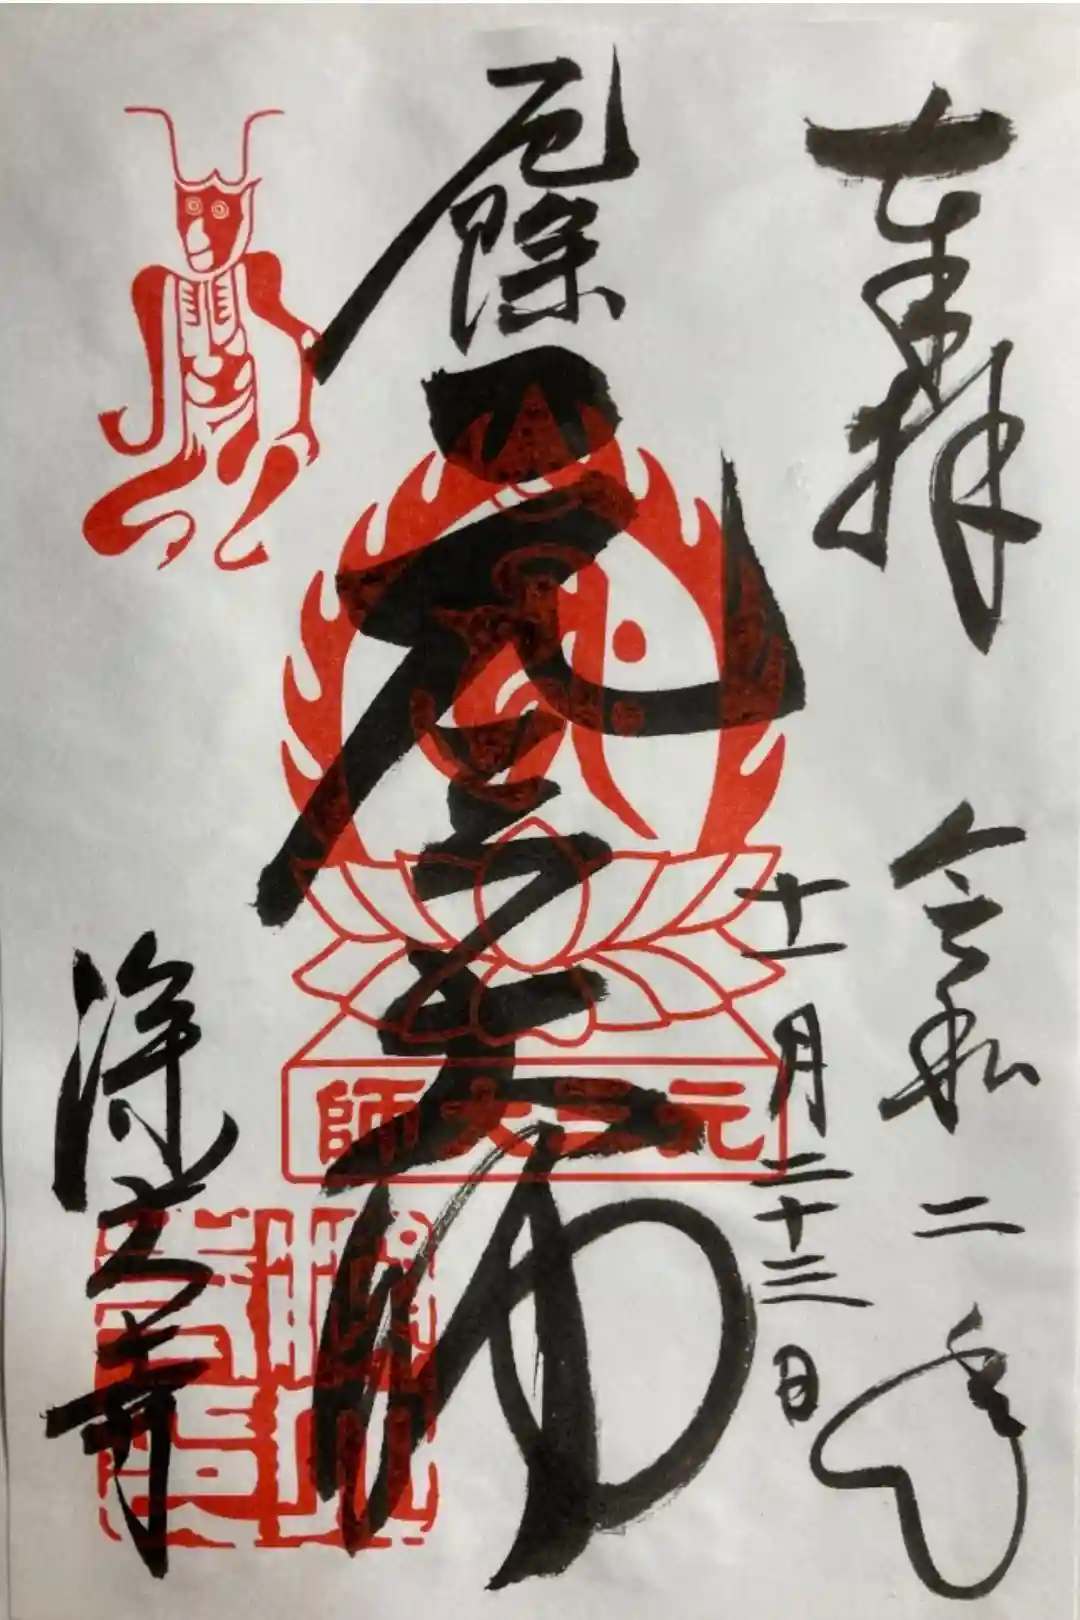 奉拝
令和二年
十一月二十三日
厄除
元三大師
元三大師
浄立寺